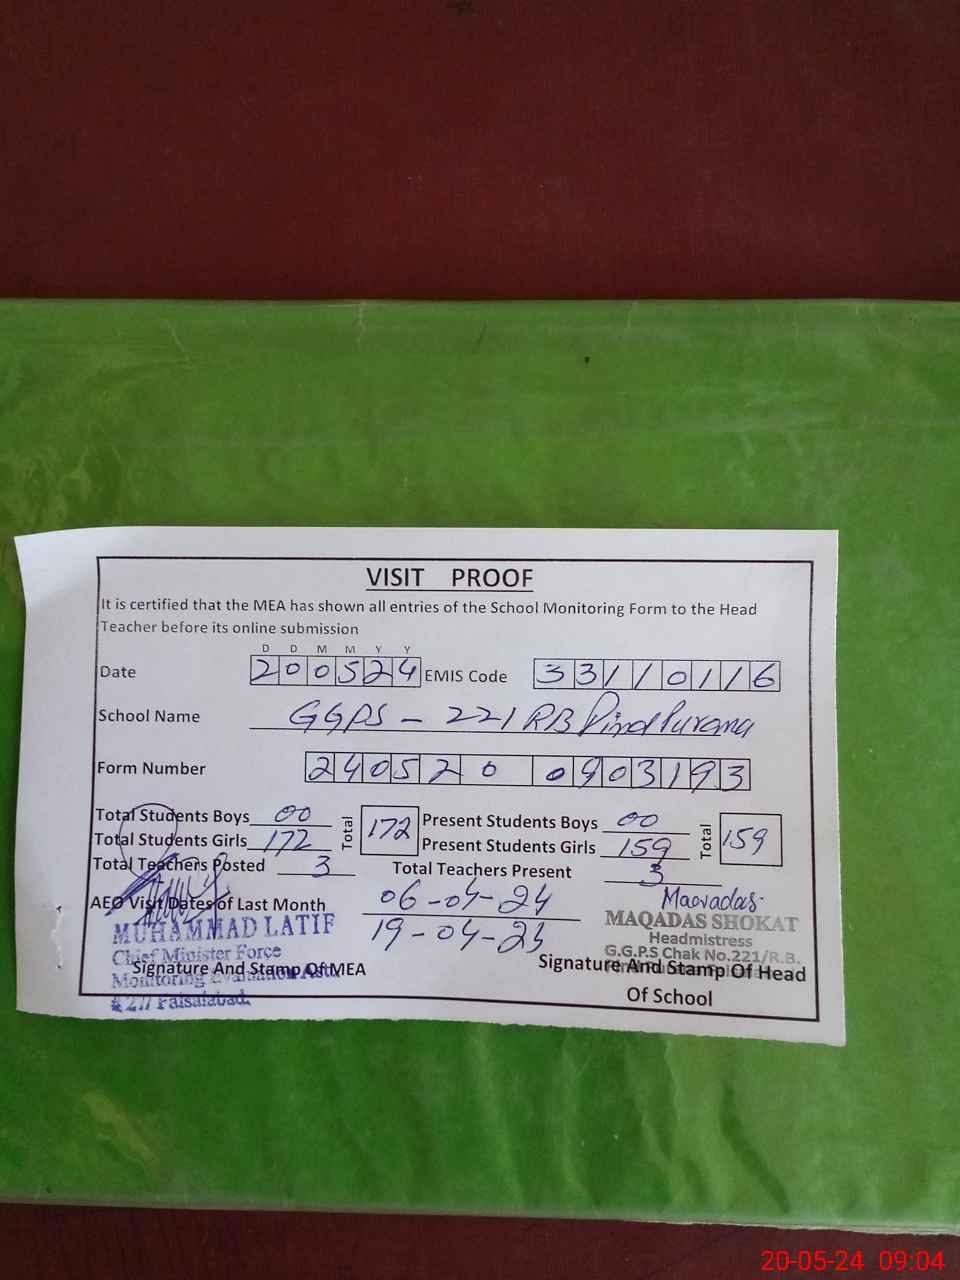 VISIT PROOF
It is certified that the MEA has shown all entries of the School Monitoring Form to the Head
Teacher before its online submission
D D M M Y Y
Date 200524 EMIS Code 33110116
School Name GGPS - 221 RB Pind Purana
Form Number 240520 0903193
Total Students Boys 00 Total 172 Present Students Boys 00 Total 159
Total Students Girls 172 Present Students Girls 159
Total Teachers Posted 3 Total Teachers Present 3
AEO Visit Dates of Last Month 06-04-24
19-04-24
MUHAMMAD LATIF
Chief Minister Force
Monitoring Evaluation Astt.
# 277 Faisalabad.
Signature And Stamp Of MEA
MAQADAS SHOKAT
Headmistress
G.G.P.S Chak No.221/R.B.
Signature And Stamp Of Head
Of School
20-05-24 09:04